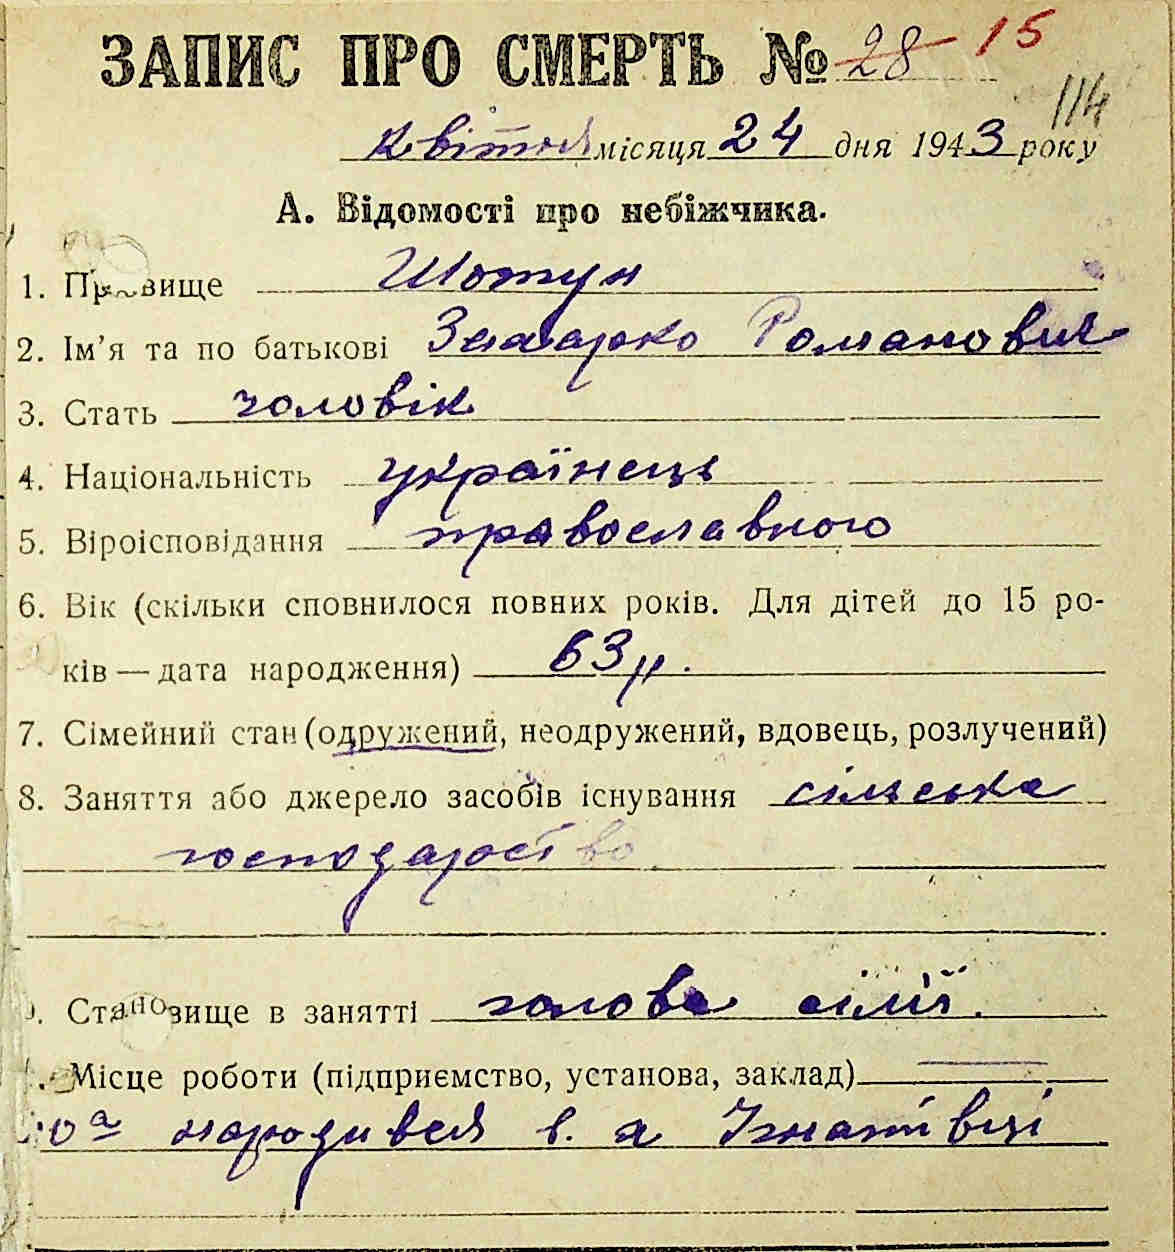 ЗАПИС ПРО СМЕРТЬ № 28 15
114
квітня місяця 24 дня 1943 року
А. Відомості про небіжчика.
1. Прізвище Шотун
2. Ім'я та по батькові Захарко Романович
3. Стать чоловік
4. Національність українець
5. Віроісповідання православного
6. Вік (скільки сповнилося повних років. Для дітей до 15 ро-
ків — дата народження) 63 р.
7. Сімейний стан (одружений, неодружений, вдовець, розлучений)
8. Заняття або джерело засобів існування сільська
господарство
9. Становище в занятті голова сімії.
Місце роботи (підприємство, установа, заклад)
10а народився в с. Ігнатівці